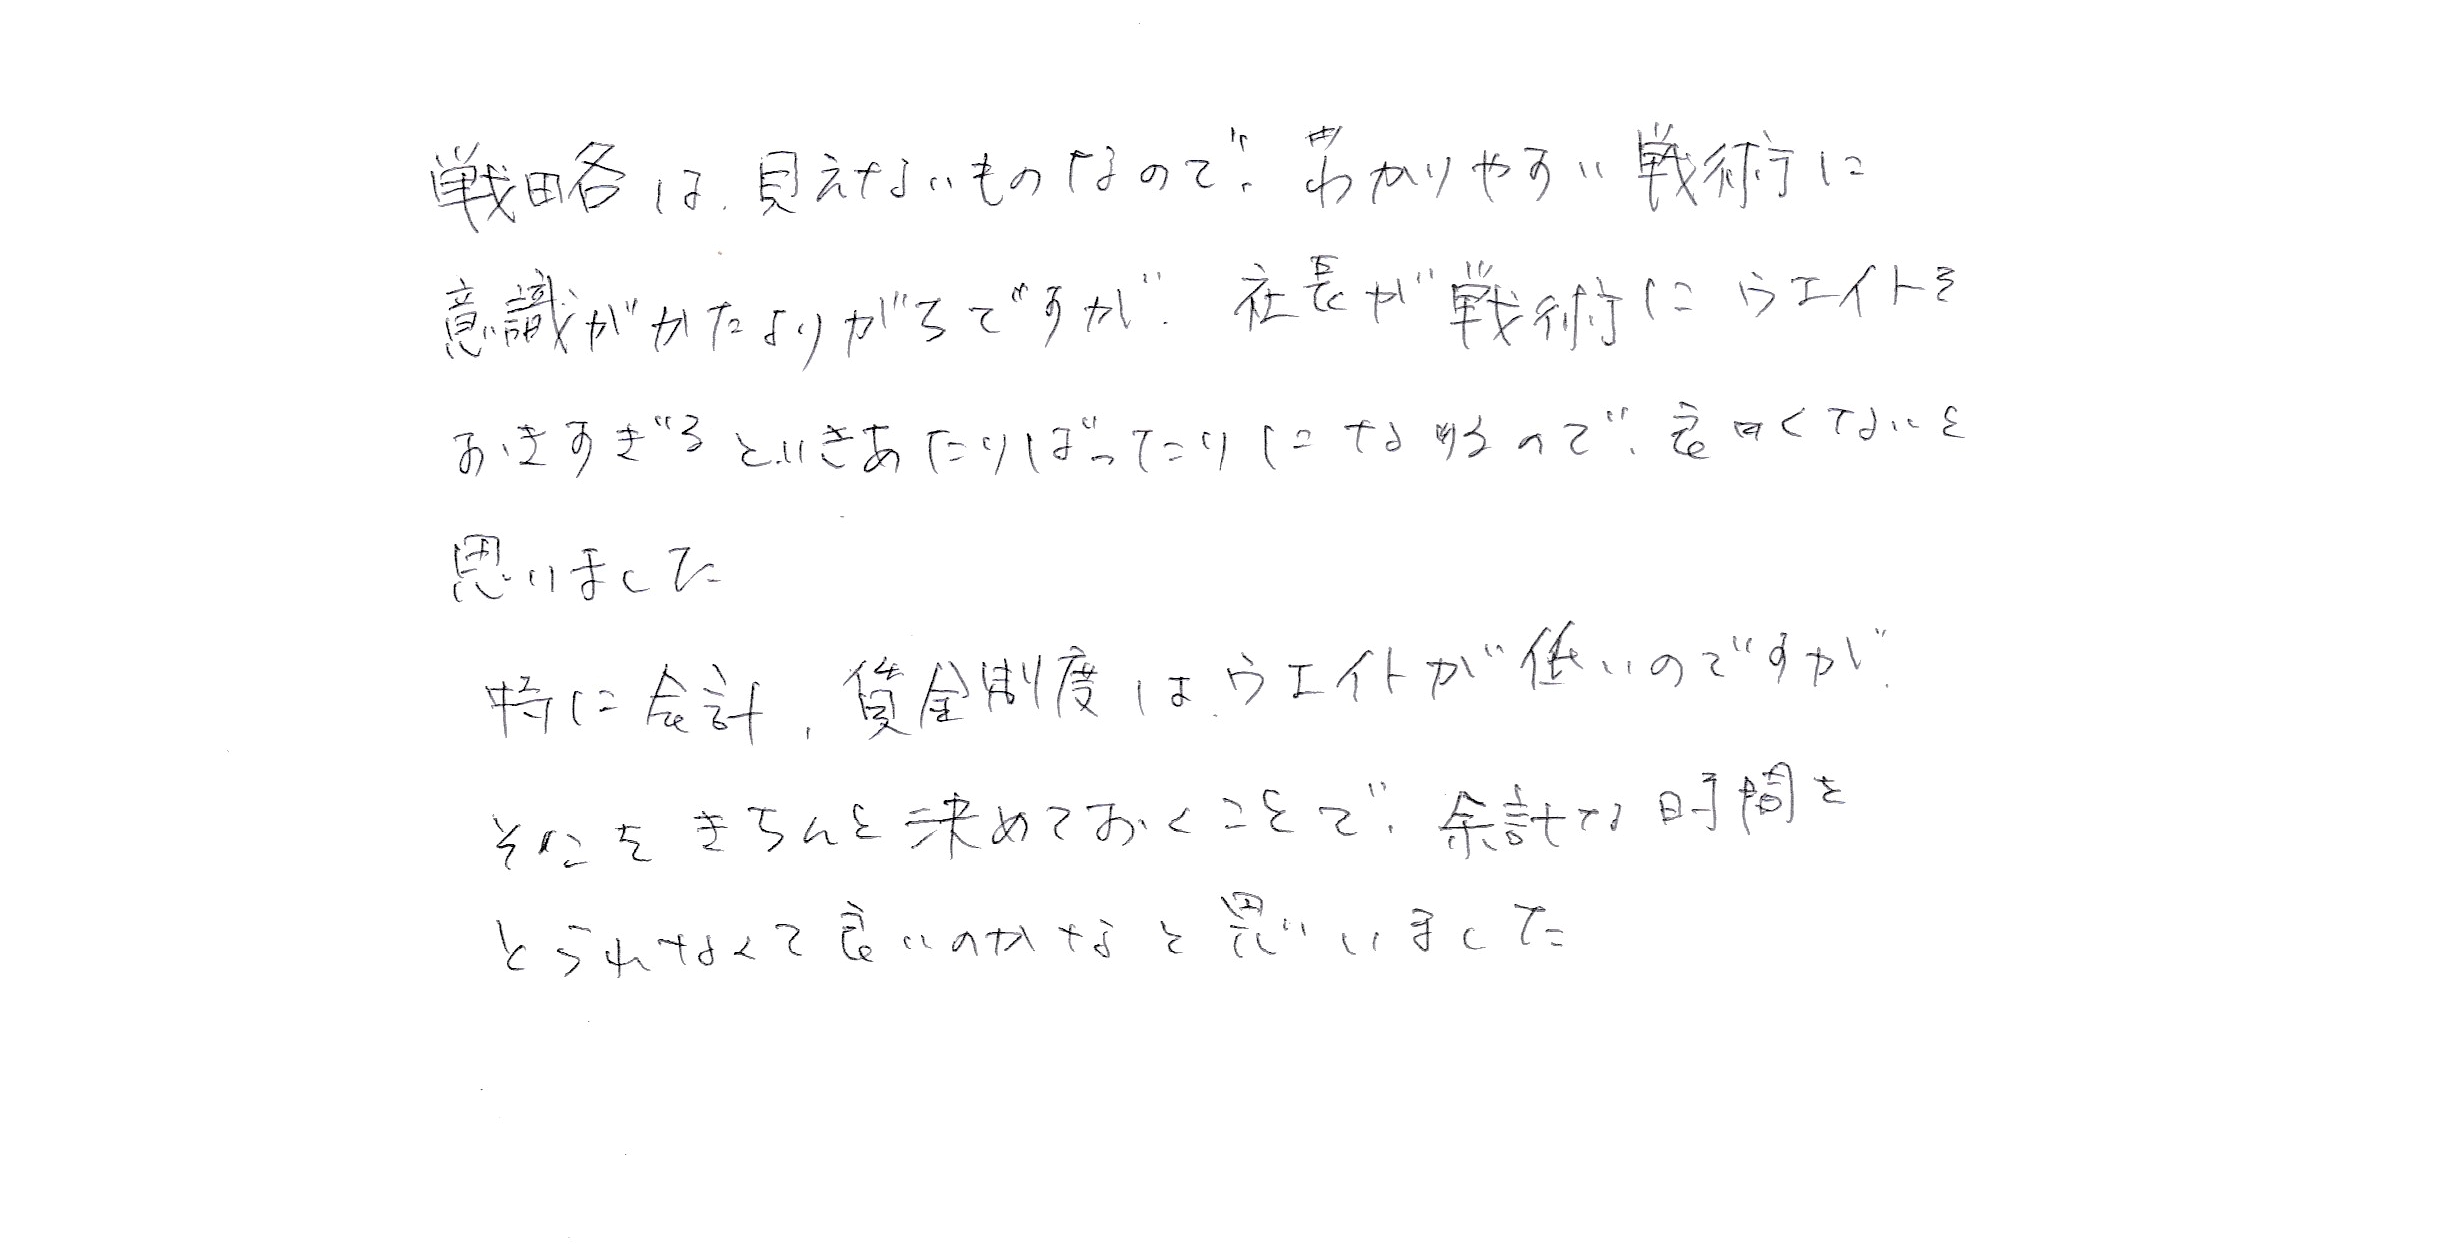 戦略は、見えないものなので、わかりやすい戦術に
意識がかたよりがちですが、社長が戦術にウエイトを
おきすぎるといきあたりばったりになるので、良くないと
思いました
特に会計、賃金制度は、ウエイトが低いのですが、
そこをきちんと決めておくことで、余計な時間を
とられなくて良いのかなと思いました